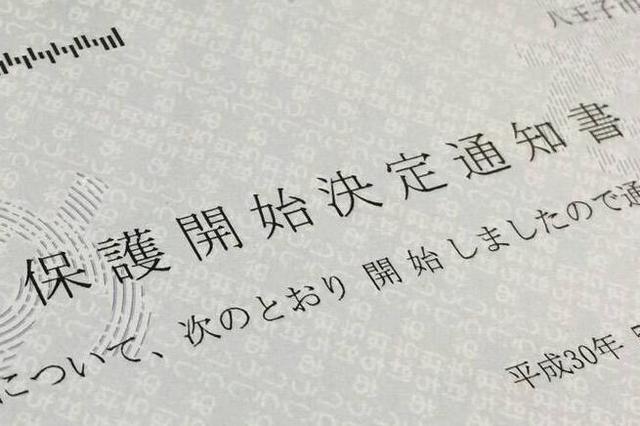 八王子市
保護開始決定通知書
について、次のとおり 開 始 しましたので通
平成30年